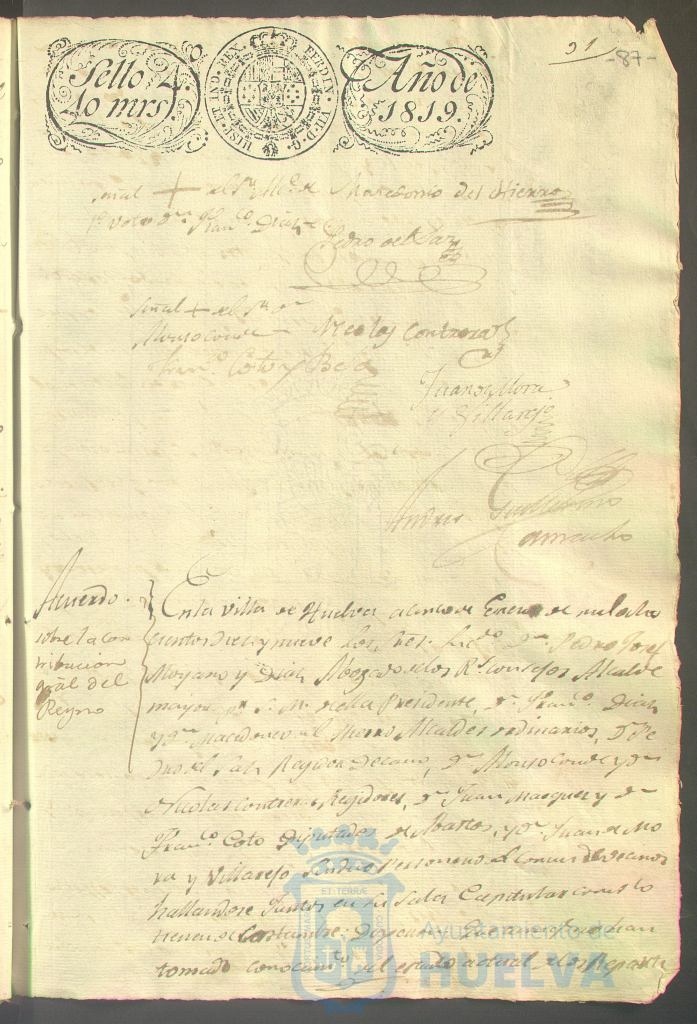 91
-87-
Sello 4.
40 mrs.
HISP. ET IND. REX. FERDIN. VII. D. G.
Año de
1819.
señal + del Sr Macedonio del Hierro
1º Voto Franco. Diaz
Pedro del Saz
señal + del Sr Dn
Alonso Conde
Nicolas Contreras
Franco. Coto y
Juan de Mora
y Villarejo
Andres Guillermo
Camacho
Acuerdo.
sobre la con
tribucion
gral del
Reyno
En la villa de Huelva a cinco de Enero de mil ocho
cientos diez y nueve los Sres. Licdo. Dn. Pedro Josef
Moyano y Diaz Abogado de los Rs. Consejos Alcalde
mayor pr S. M. de ella Presidente, Dn. Franco. Diaz
y Dn Macedonio del Hierro Alcaldes ordinarios, Dn Pe
dro del Saz Regidor Decano, Dn Alonso Conde y Dn
Nicolas Contreras Regidores, Dn Juan Marquez y Dn
Franco. Coto Diputados de Abastos, y Dn. Juan de Mo
ra y Villarejo Sindico Personero del Comun de vecinos
hallandose Juntos en su Sala Capitular como lo
tienen de Costumbre: Dixeron: Que han
tomado conocimto. del estado actual de los Reparti
ET TERRÆ
Ayuntamiento de
HUELVA